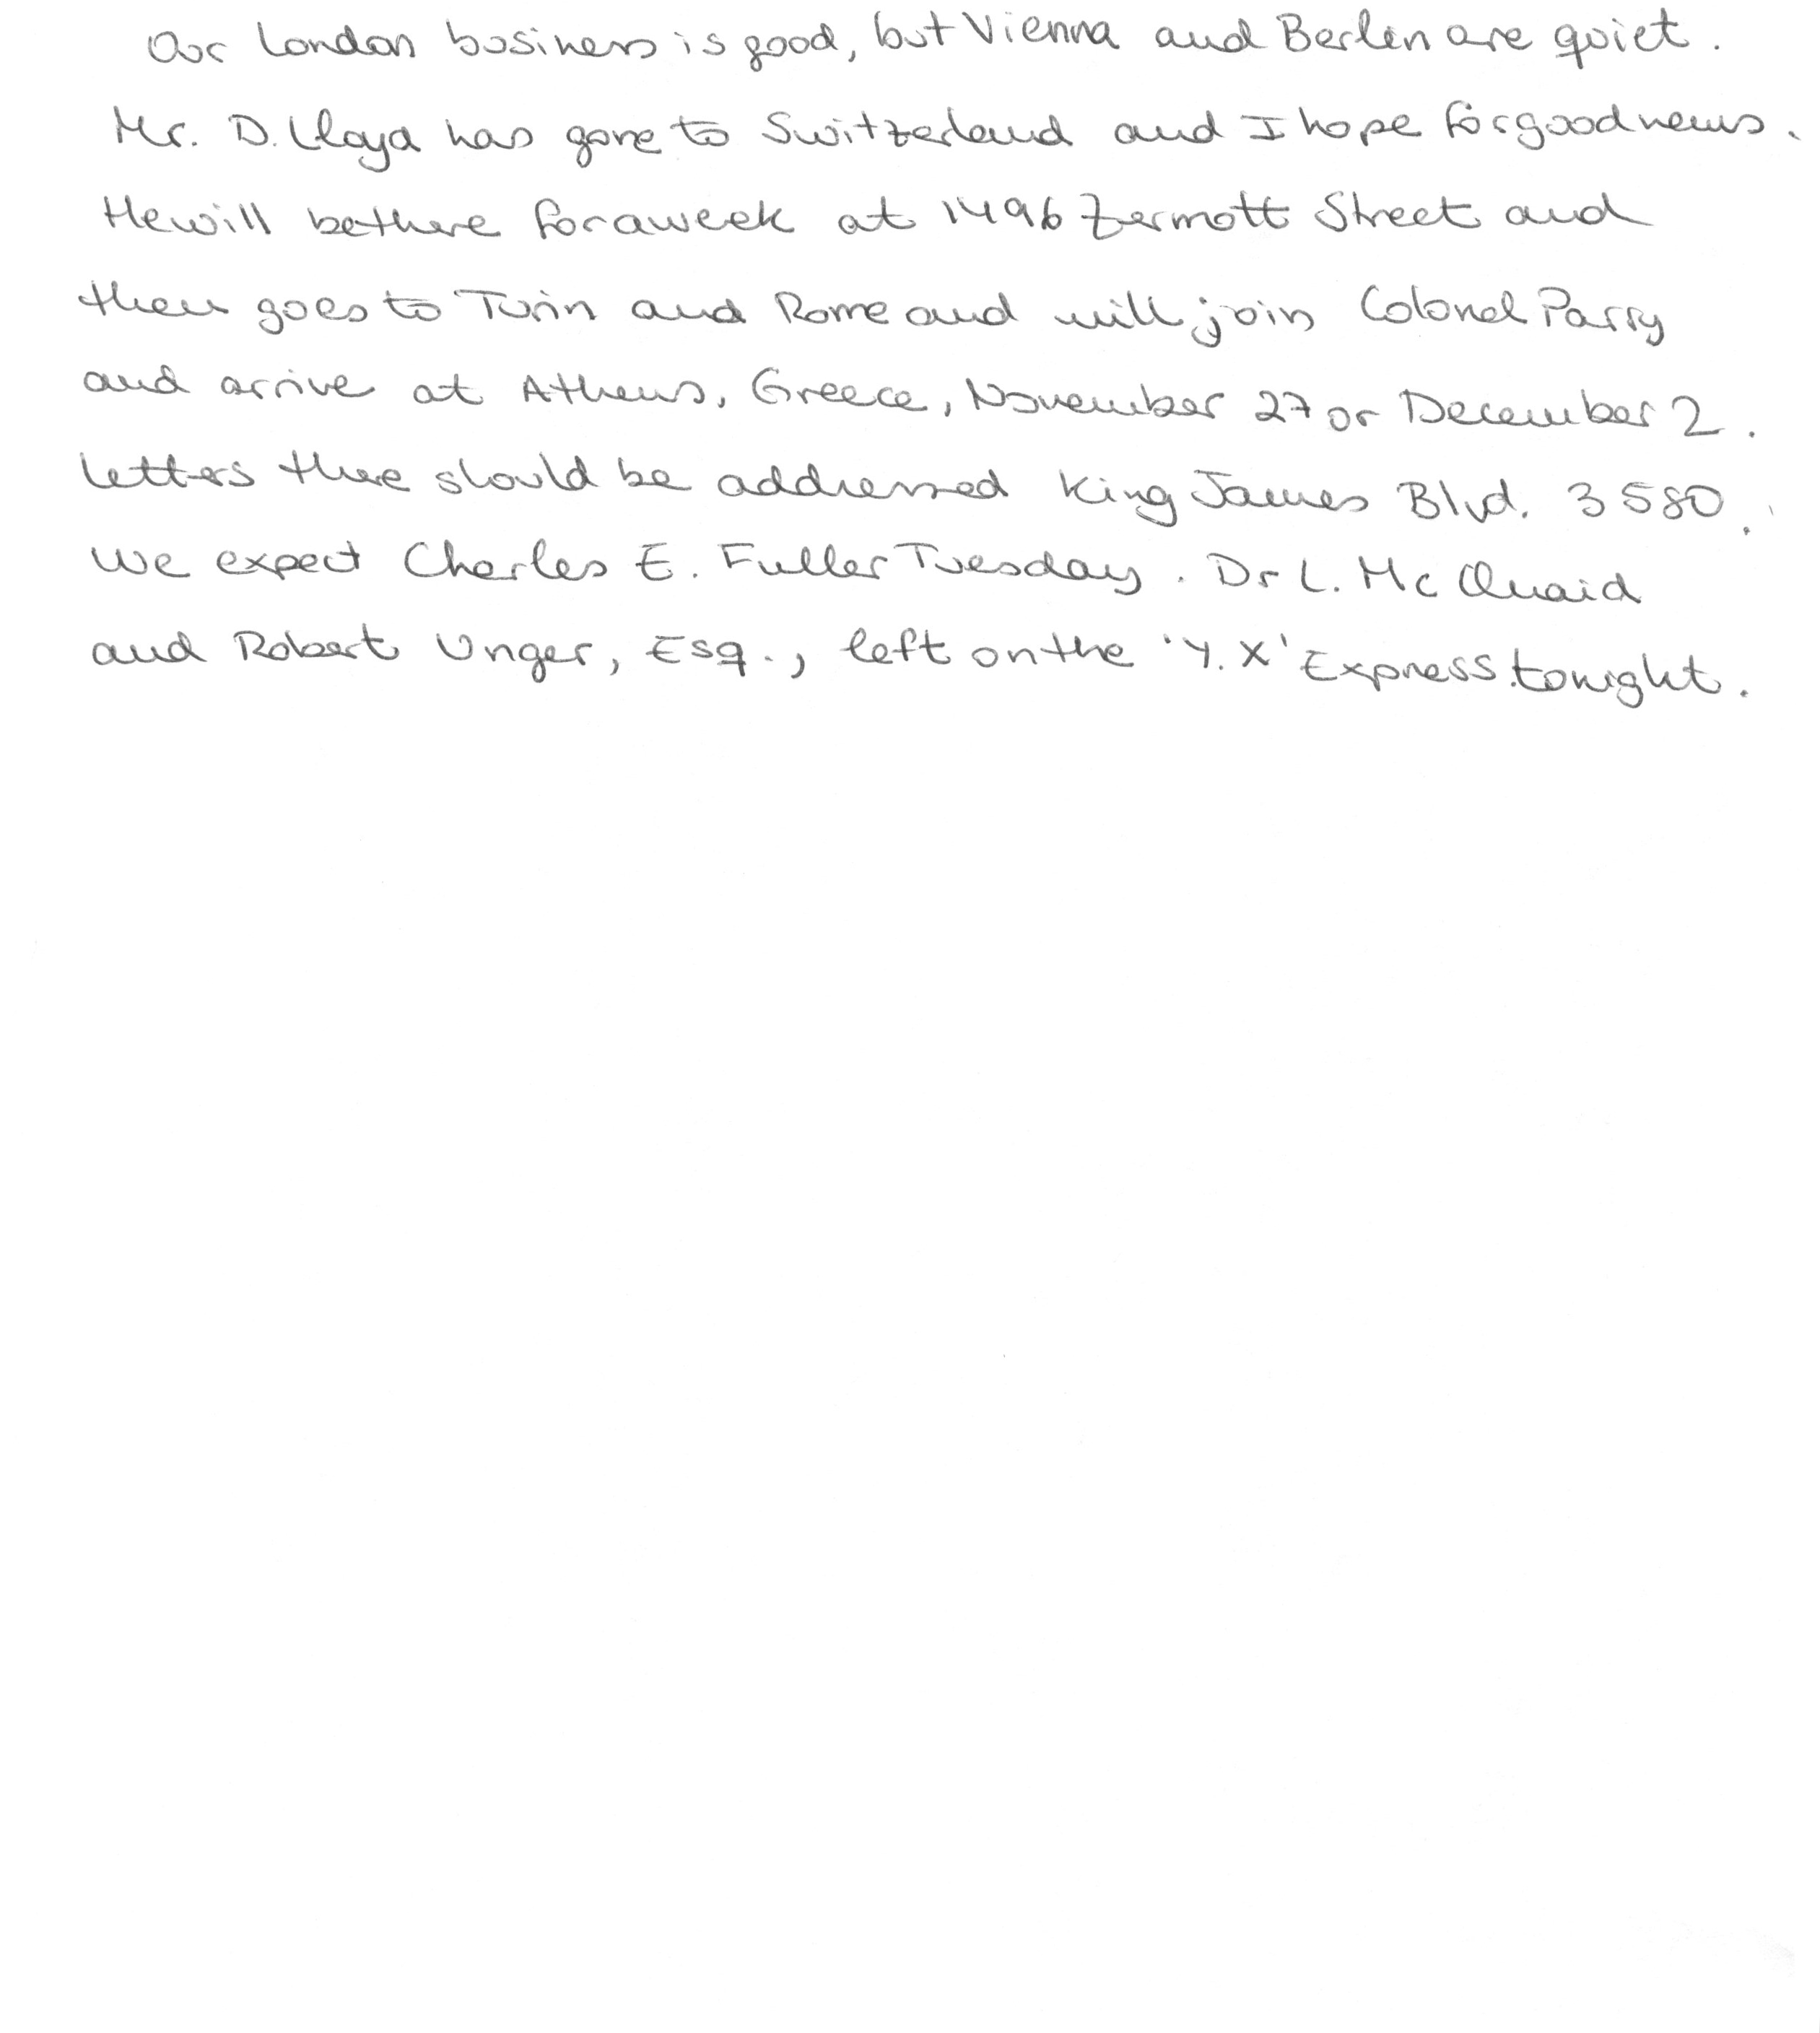 Our London business is good, but Vienna and Berlin are quiet.
Mr. D. Lloyd has gone to Switzerland and I hope for good news.
He will be there for a week at 1496 Zermott Street and
then goes to Turin and Rome and will join Colonel Parry
and arrive at Athens, Greece, November 27 or December 2.
Letters there should be addressed King James Blvd. 3580.
We expect Charles E. Fuller Tuesday. Dr L. McQuaid
and Robert Unger, Esq., left on the 'Y.X' Express tonight.